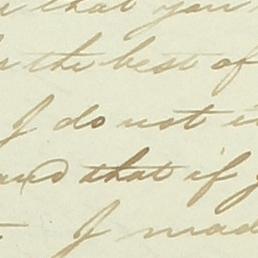 that you
the best of
I do not
and that if
I mad